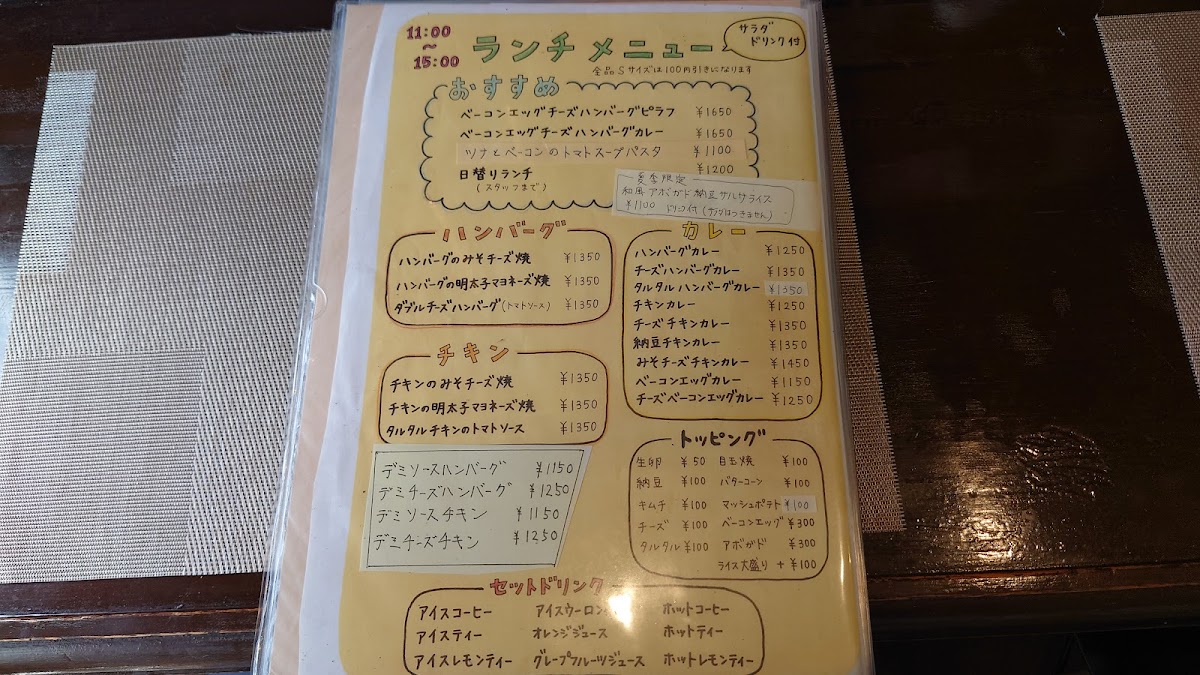 11:00
〜
15:00
ランチメニュー
サラダ
ドリンク付
全品Sサイズは100円引きになります
おすすめ
ベーコンエッグチーズハンバーグピラフ ¥1650
ベーコンエッグチーズハンバーグカレー ¥1650
ツナとベーコンのトマトスープパスタ ¥1100
日替りランチ ¥1200
(スタッフまで)
夏季限定
和風アボカド納豆サルサライス
¥1100 ドリンク付(サラダはつきません)
ハンバーグ
ハンバーグのみそチーズ焼 ¥1350
ハンバーグの明太子マヨネーズ焼 ¥1350
ダブルチーズハンバーグ(トマトソース) ¥1350
チキン
チキンのみそチーズ焼 ¥1350
チキンの明太子マヨネーズ焼 ¥1350
タルタルチキンのトマトソース ¥1350
デミソースハンバーグ ¥1150
デミチーズハンバーグ ¥1250
デミソースチキン ¥1150
デミチーズチキン ¥1250
カレー
ハンバーグカレー ¥1250
チーズハンバーグカレー ¥1350
タルタルハンバーグカレー ¥1350
チキンカレー ¥1250
チーズチキンカレー ¥1350
納豆チキンカレー ¥1350
みそチーズチキンカレー ¥1450
ベーコンエッグカレー ¥1150
チーズベーコンエッグカレー ¥1250
トッピング
生卵 ¥50 目玉焼 ¥100
納豆 ¥100 バターコーン ¥100
キムチ ¥100 マッシュポテト ¥100
チーズ ¥100 ベーコンエッグ ¥300
タルタル ¥100 アボガド ¥300
ライス大盛り +¥100
セットドリンク
アイスコーヒー アイスウーロン ホットコーヒー
アイスティー オレンジジュース ホットティー
アイスレモンティー グレープフルーツジュース ホットレモンティー